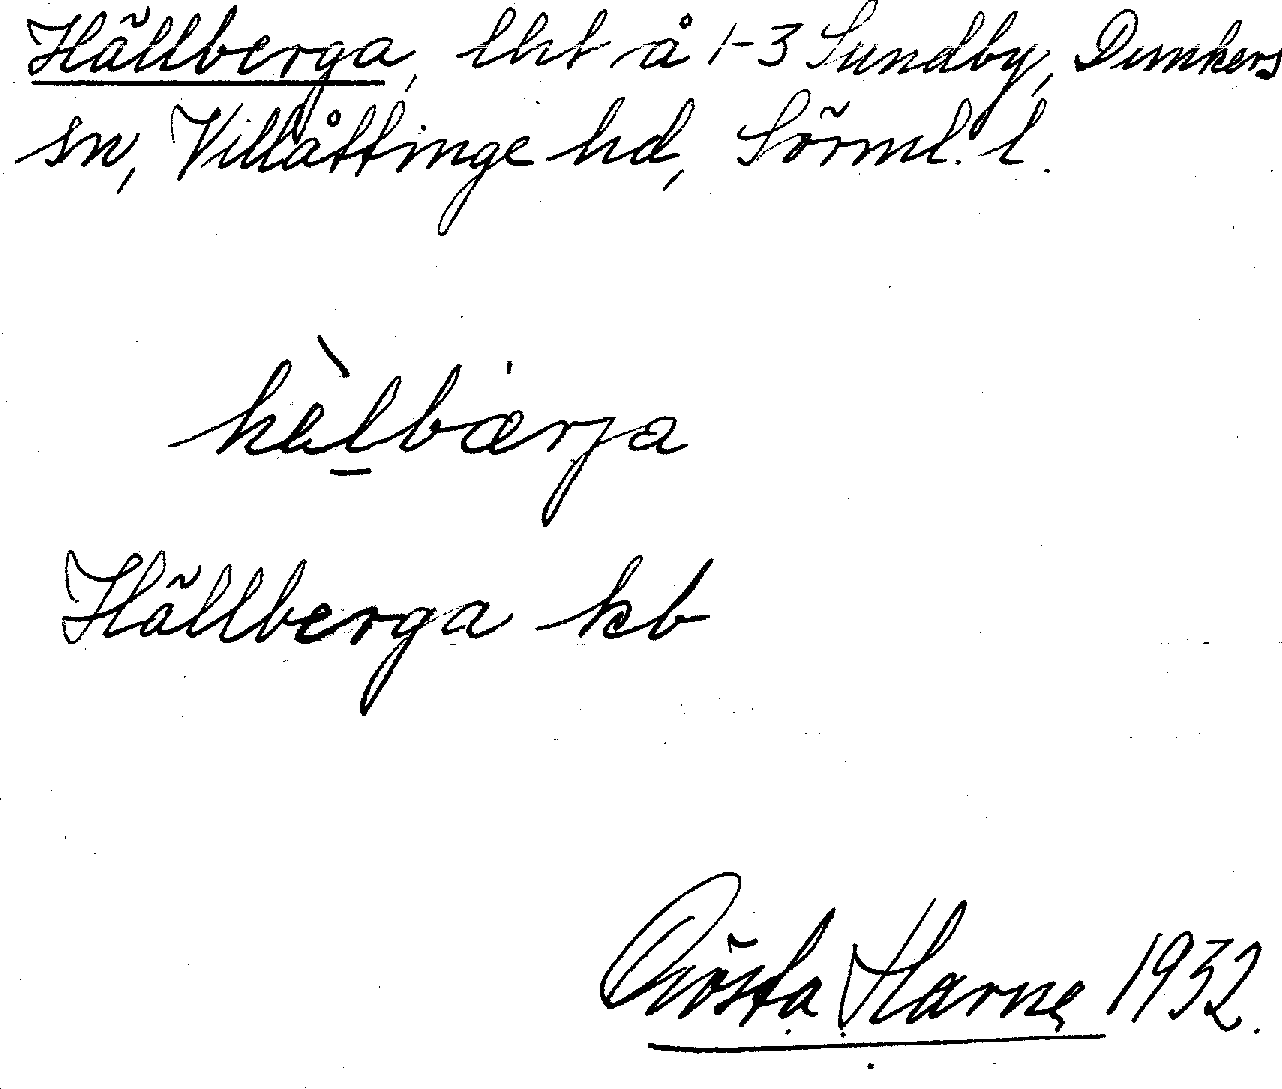 Hällberga, lht å 1-3 Sundby, Dunkers
sn, Villåttinge hd, Sörml. l.
hàlbærja
Hällberga kb
Gösta Harne 1932.